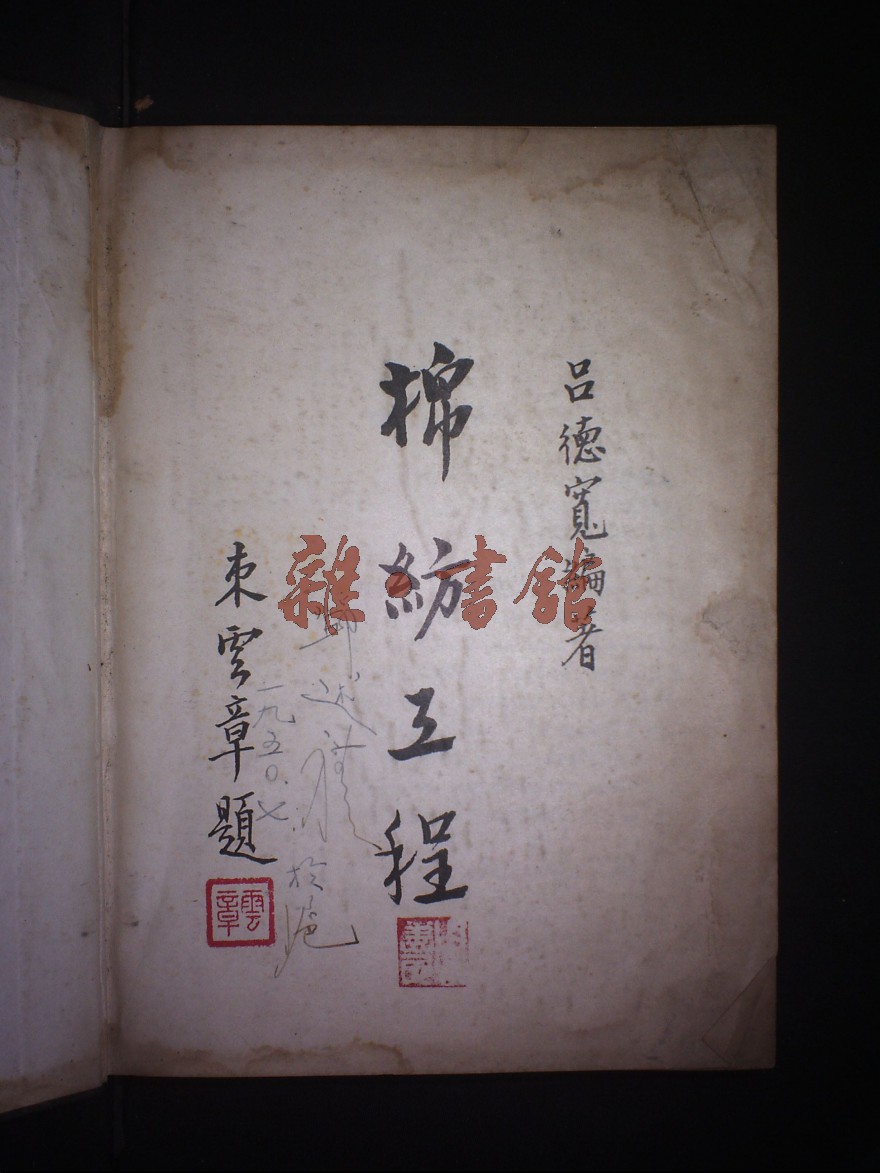 呂德寬編著
棉紡工程
束雲章題
雲章
一九五〇.七.
於滬
雜·書館